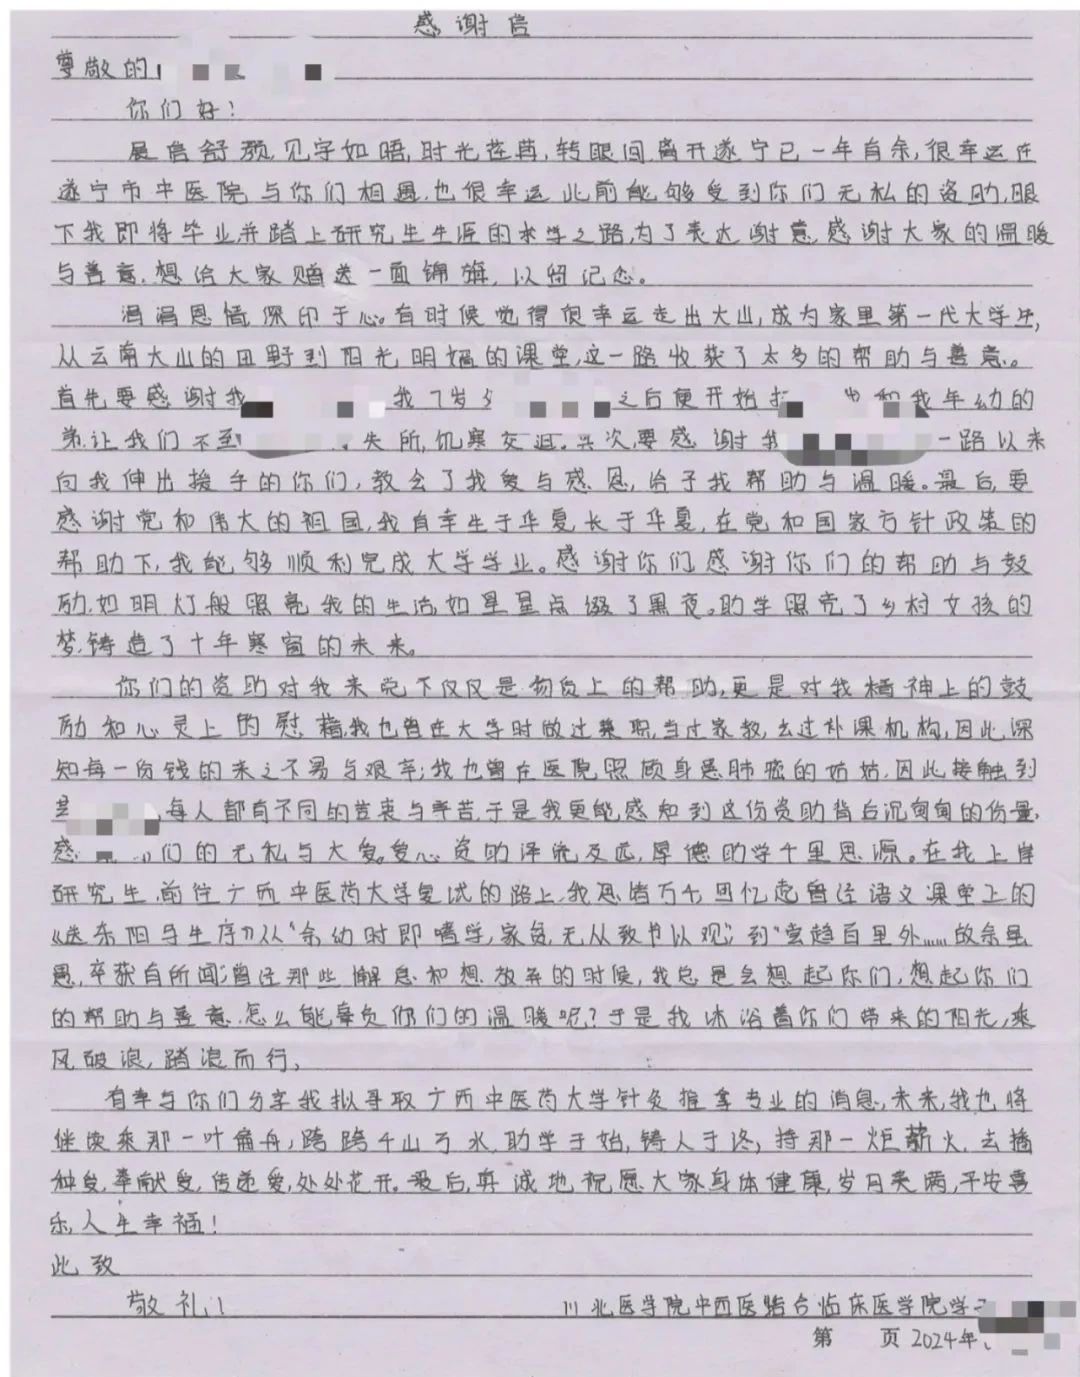 感谢信
尊敬的
你们好！
展信舒颜,见字如晤,时光荏苒,转眼间,离开遂宁已一年有余,很幸运在
遂宁市中医院与你们相遇,也很幸运此前能够受到你们无私的资助,眼
下我即将毕业,并踏上研究生生涯的求学之路,为了表达谢意,感谢大家的温暖
与善意,想给大家赠送一面锦旗,以留记念。
涓涓恩情深印于心。有时候觉得很幸运走出大山,成为家里第一代大学生,
从云南大山的田野到阳光明媚的课堂,这一路收获了太多的帮助与善意。
首先要感谢我 我7岁 之后便开始 和我年幼的
弟,让我们不至 失所,饥寒交迫。其次,要感谢我 一路以来
向我伸出援手的你们,教会了我爱与感恩,给予我帮助与温暖。最后,要
感谢党和伟大的祖国,我有幸生于华夏,长于华夏,在党和国家方针政策的
帮助下,我能够顺利完成大学学业。感谢你们,感谢你们的帮助与鼓
励,如明灯般照亮我的生活,如星星点缀了黑夜。助学照亮了乡村女孩的
梦,铸造了十年寒窗的未来。
你们的资助对我来说不仅仅是物质上的帮助,更是对我精神上的鼓
励和心灵上的慰藉,我也曾在大学时做过兼职,当过家教,去过补课机构,因此深
知每一份钱的来之不易与艰辛;我也曾在医院照顾身患肺癌的姑姑,因此接触到
每人都有不同的苦衷与辛苦,于是我更能感知到这份资助背后沉甸甸的份量,
感 你们的无私与大爱。爱心资助泽流及远,厚德助学千里思源。在我上岸
研究生,前往广西中医药大学复试的路上,我思绪万千,回忆起曾经语文课堂上的
《送东阳马生序》,从“余幼时即嗜学,家贫,无从致书以观”,到“尝趋百里外……故余虽
愚,卒获有所闻”,曾经那些懈怠和想放弃的时候,我总是会想起你们,想起你们
的帮助与善意,怎么能辜负你们的温暖呢?于是我沐浴着你们带来的阳光,乘
风破浪,踏浪而行。
有幸与你们分享我拟录取广西中医药大学针灸推拿专业的消息,未来,我也将
继续乘那一叶扁舟,跨跨千山万水,助学于始,铸人于终,持那一炬薪火,去播
种爱,奉献爱,传递爱,处处花开。最后,真诚地祝愿大家身体健康,岁月美满,平安喜
乐,人生幸福!
此致
敬礼!
川北医学院中西医结合临床医学院学子
第 页 2024年